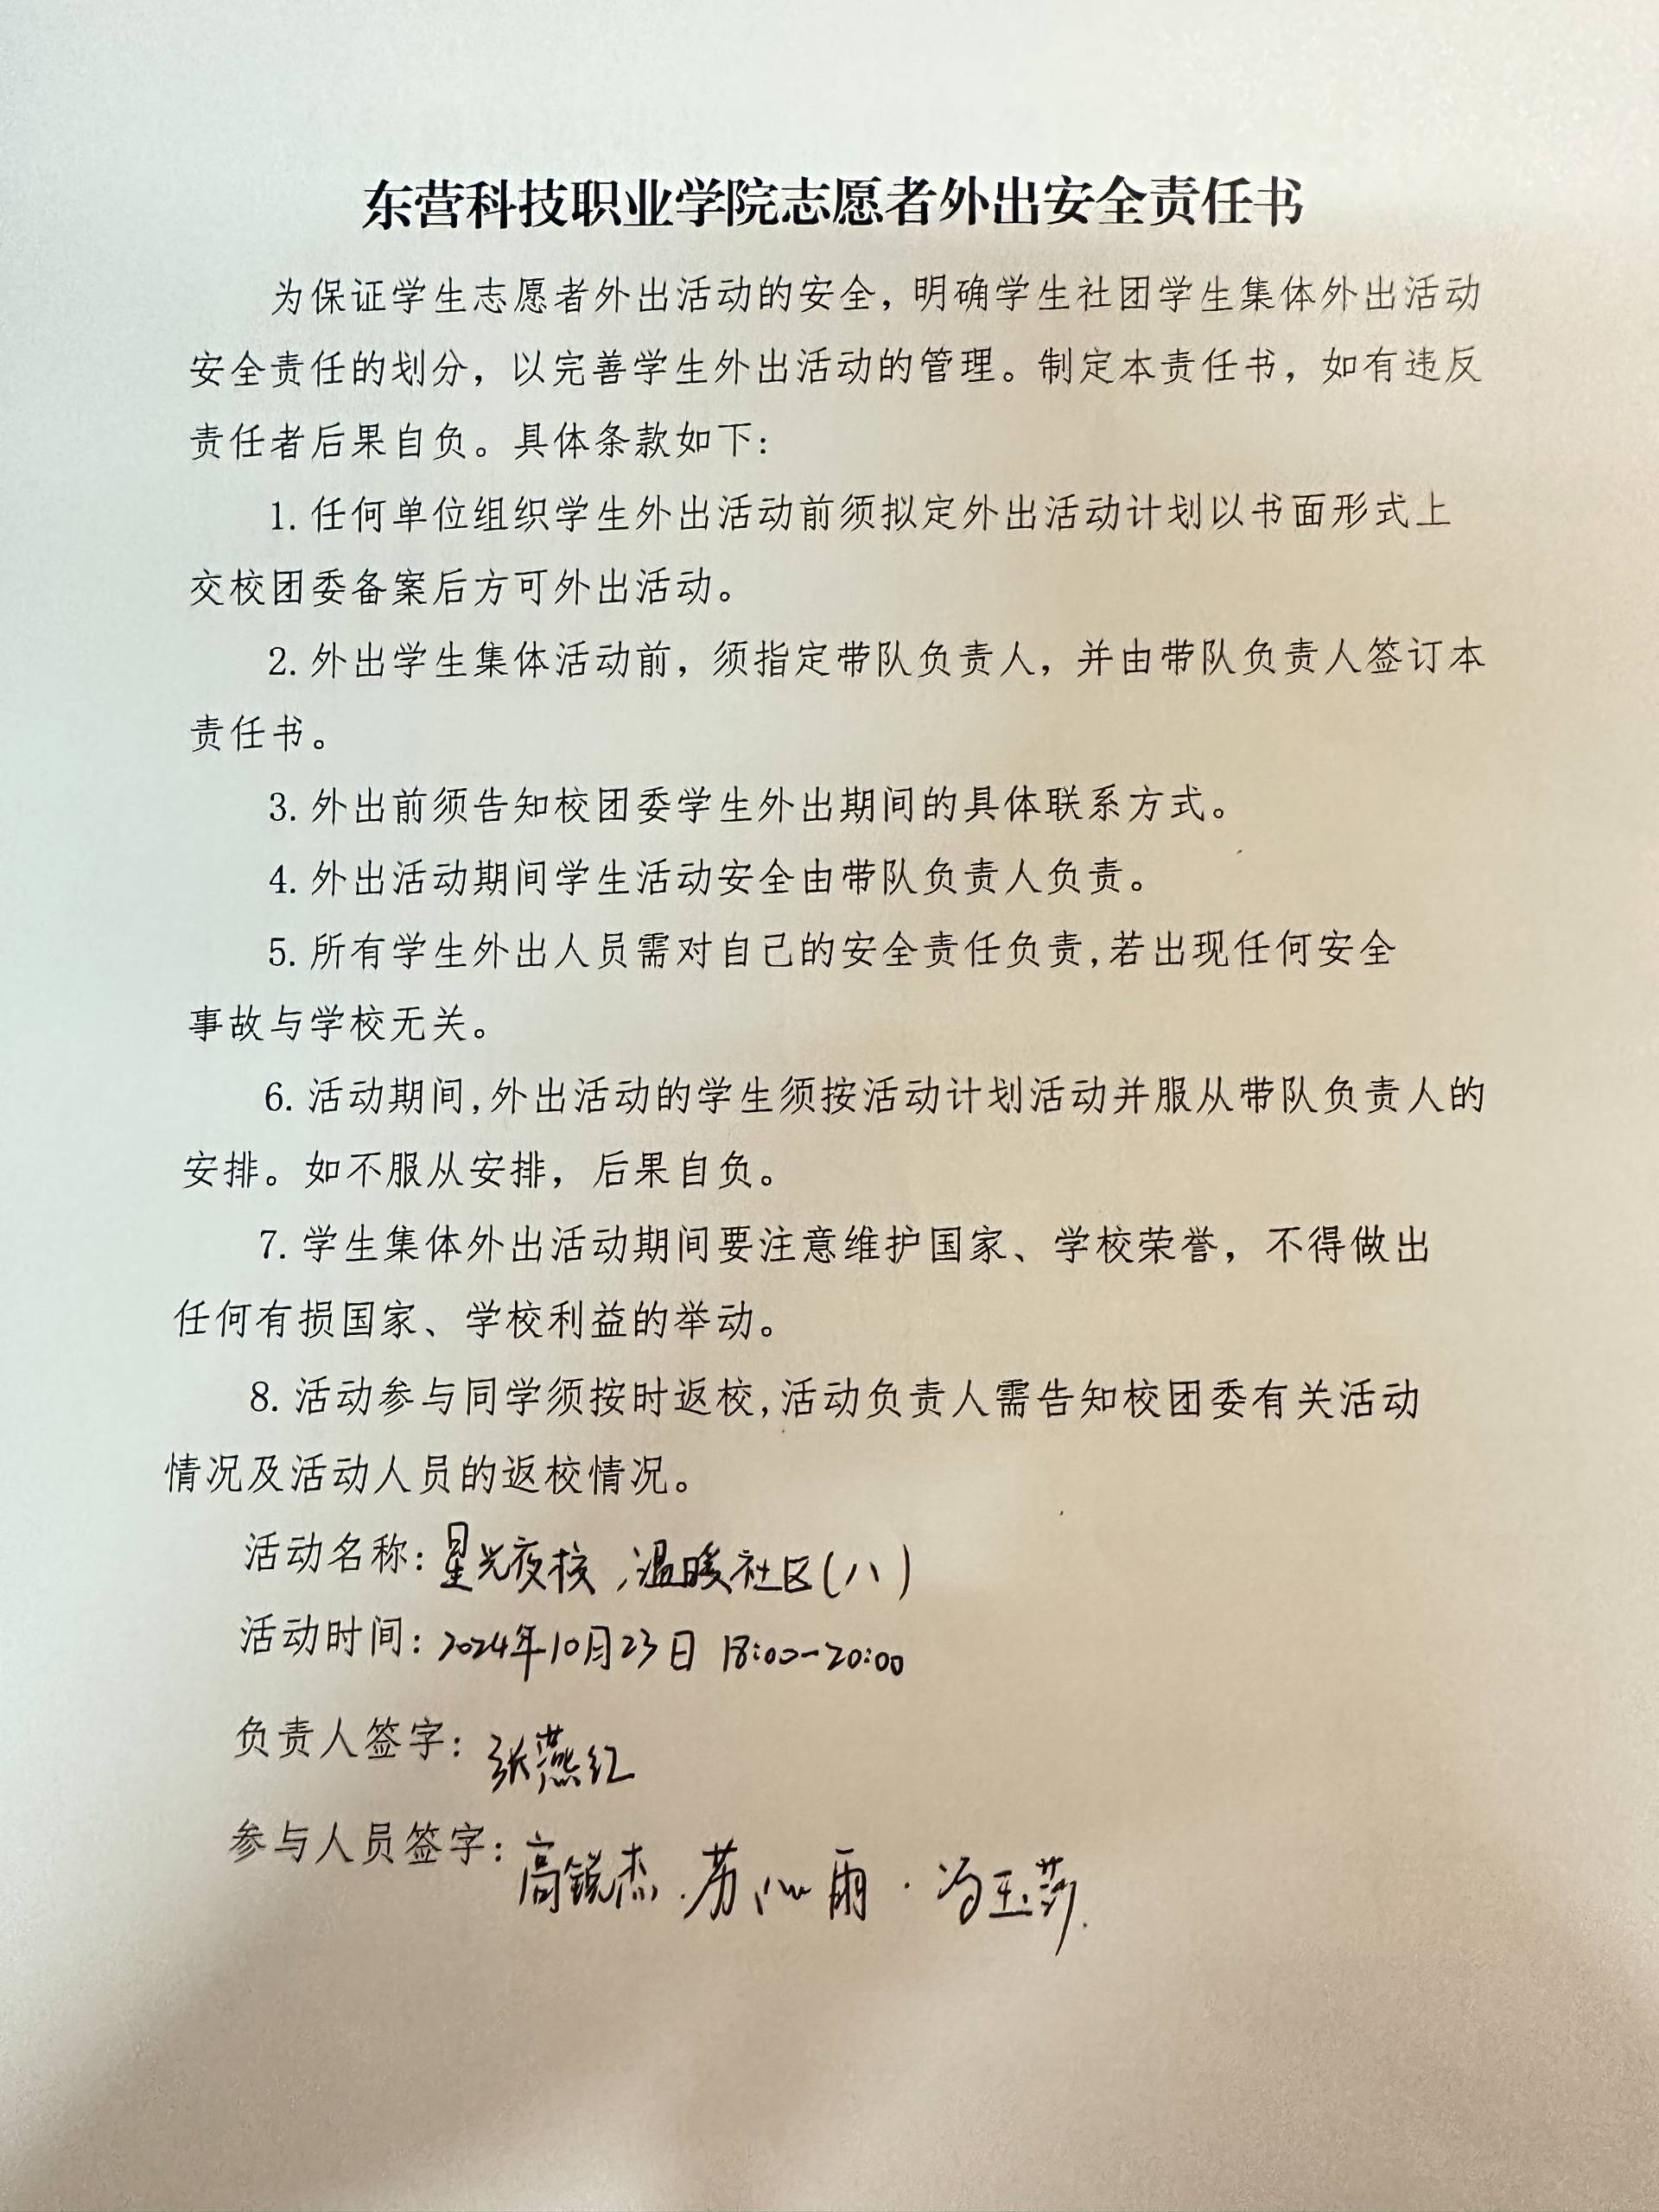 东营科技职业学院志愿者外出安全责任书
为保证学生志愿者外出活动的安全，明确学生社团学生集体外出活动
安全责任的划分，以完善学生外出活动的管理。制定本责任书，如有违反
责任者后果自负。具体条款如下：
1.任何单位组织学生外出活动前须拟定外出活动计划以书面形式上
交校团委备案后方可外出活动。
2.外出学生集体活动前，须指定带队负责人，并由带队负责人签订本
责任书。
3.外出前须告知校团委学生外出期间的具体联系方式。
4.外出活动期间学生活动安全由带队负责人负责。
5.所有学生外出人员需对自己的安全责任负责,若出现任何安全
事故与学校无关。
6.活动期间,外出活动的学生须按活动计划活动并服从带队负责人的
安排。如不服从安排，后果自负。
7.学生集体外出活动期间要注意维护国家、学校荣誉，不得做出
任何有损国家、学校利益的举动。
8.活动参与同学须按时返校,活动负责人需告知校团委有关活动
情况及活动人员的返校情况。
活动名称：星光夜校，温暖社区(八)
活动时间：2024年10月23日 18:00-20:00
负责人签字：张燕红
参与人员签字：高锐杰.苏心雨.冯玉莎.